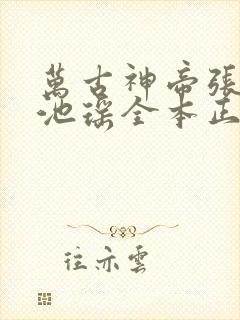 萬古神帝張
池瑤全本正
往亦雲